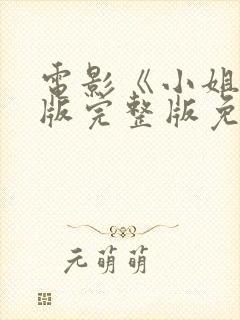 電影《小姐
版完整版免
元萌萌